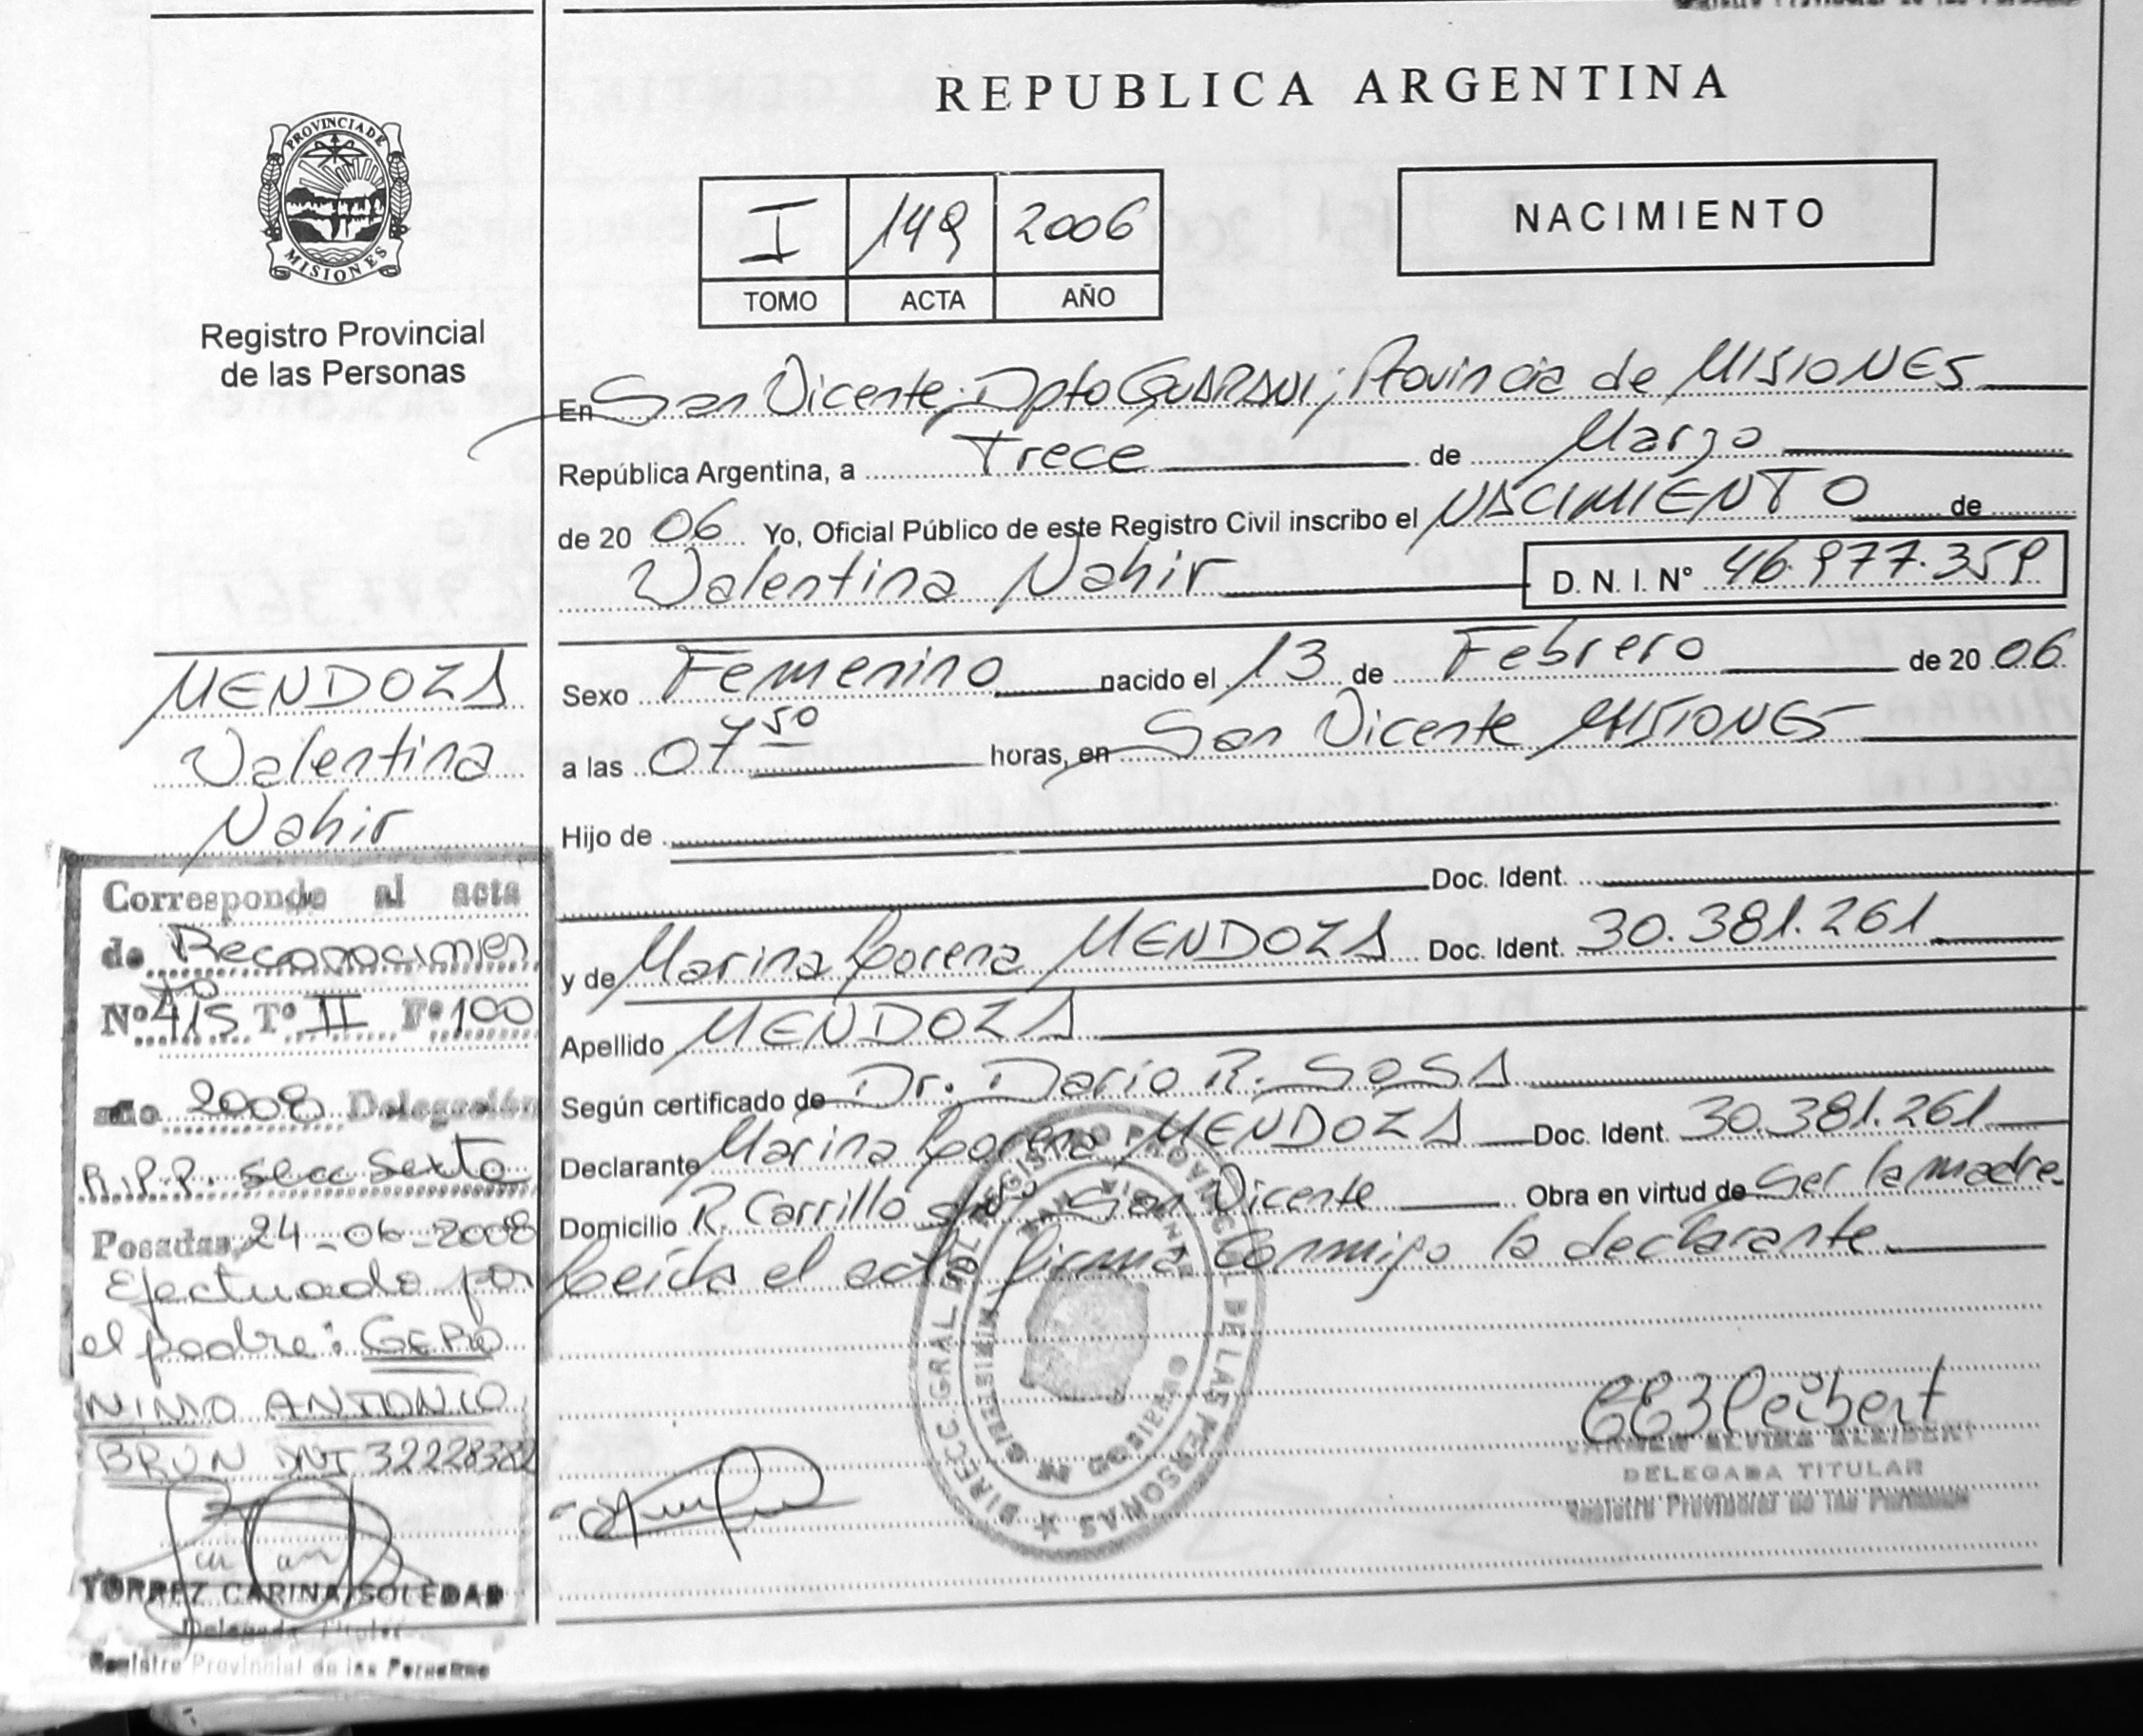 REPUBLICA ARGENTINA
PROVINCIA DE
MISIONES
Registro Provincial
de las Personas
I 149 2006
TOMO ACTA AÑO
NACIMIENTO
En San Vicente, Dpto GUARANI; Provincia de MISIONES
República Argentina, a Trece de Marzo
de 20 06 Yo, Oficial Público de este Registro Civil inscribo el NACIMIENTO de
Valentina Nahir D. N. I. Nº 46.977.359
Sexo Femenino nacido el 13 de Febrero de 20 06
a las 07 50 horas, en San Vicente MISIONES
Hijo de
Doc. Ident.
y de Marina Lorena MENDOZA Doc. Ident. 30.381.261
Apellido MENDOZA
Según certificado de Dr. Dario R. SOSA
Declarante Marina Lorena MENDOZA Doc. Ident. 30.381.261
Domicilio R. Carrillo s/nº San Vicente Obra en virtud de Ser la madre.
Leída el acta firma conmigo la declarante.
MENDOZA
Valentina
Nahir
Corresponde al acta
de Reconocimien
to
Nº 415 Tº II Fº 100
año 2008 Delegación
R.P.P. secc Sexta
Posadas, 24-06-2008
Efectuado por
el padre: GERO
NIMO ANTONIO
BRUN DNI 32228382
TORREZ CARINA SOLEDAD
Delegada Titular
Registro Provincial de las Personas
DIRECC GRAL DEL REGISTRO PROVINCIAL DE LAS PERSONAS
SAN VICENTE
MISIONES
DELEGADA TITULAR
Registro Provincial de las Personas